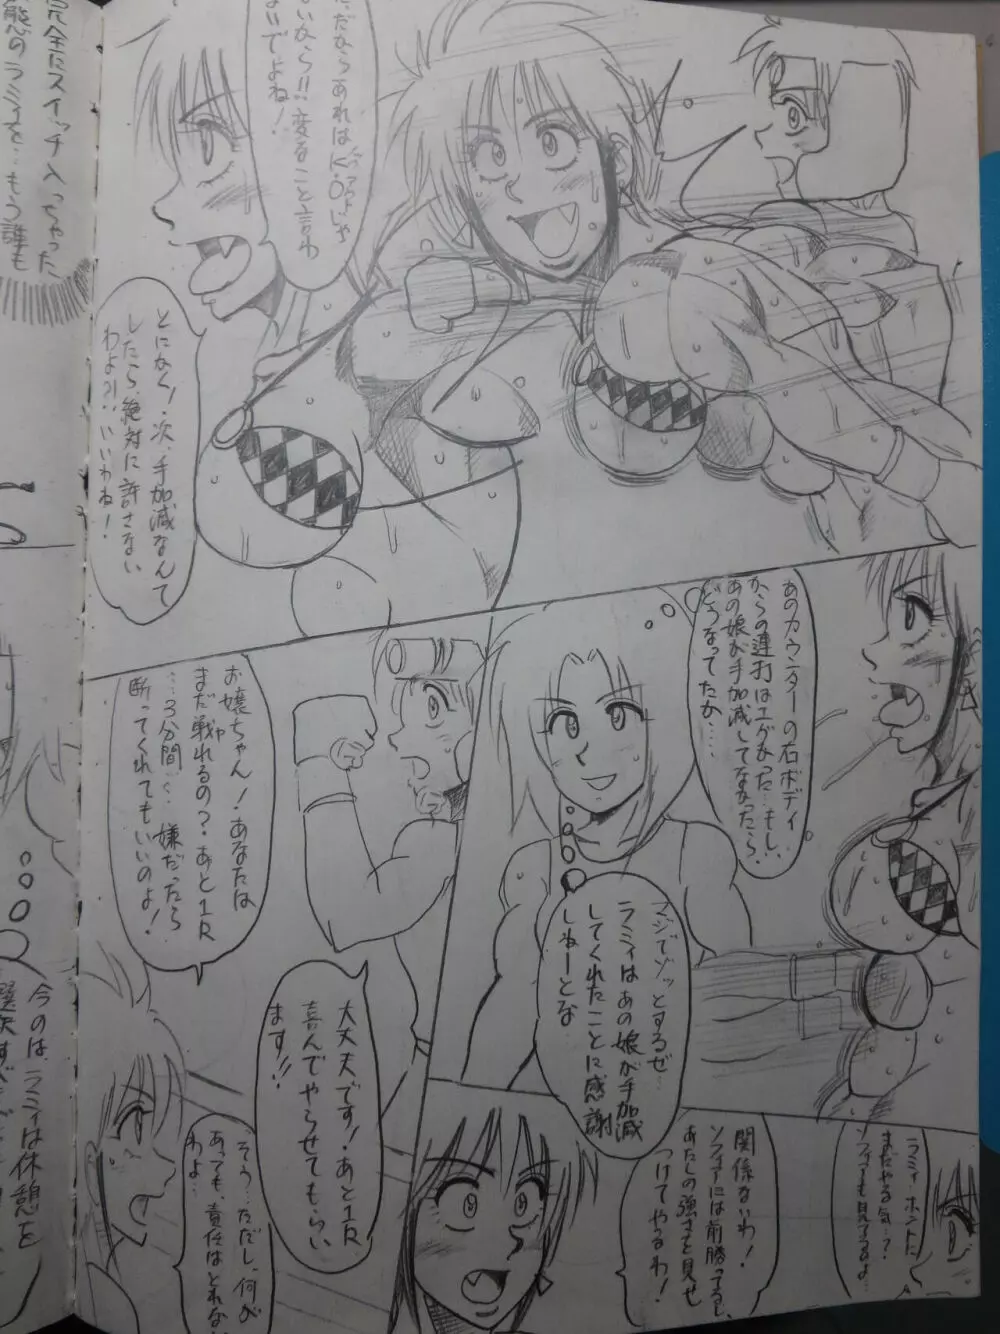 ただならあれはK.O.じゃ
ないなら!!変なこと言わ
ないでよね!
とにかく!次、手加減なんて
したら絶対に許さない
わよ?!いいわね!
あのカウンターの右ボディ
からの連打はエグかった…もし、
あの娘が手加減してなかったら
どうなってたか…
マジでゾッとするぜ…
ラミィはあの娘が手加減
してくれたことに感謝
しねーとな
お嬢ちゃん!あなたは
まだ戦れるの?あと1R
…3分間…嫌だったら
断ってくれてもいいのよ!
大丈夫です!あと1R
喜んでやらせてもらい
ます!!
そう…ただし、何が
あっても、責任はとれない
わよ…
ラミィ…ホントに
まだやる気…?
ソフィアも見てるよ…
関係ないわ!
ソフィアには前勝ってるし、
あたしの強さを見せ
つけてやるわ!
完全にスイッチ入っちゃった
状態のラミィを…もう誰も
今のは、ラミィは休憩を